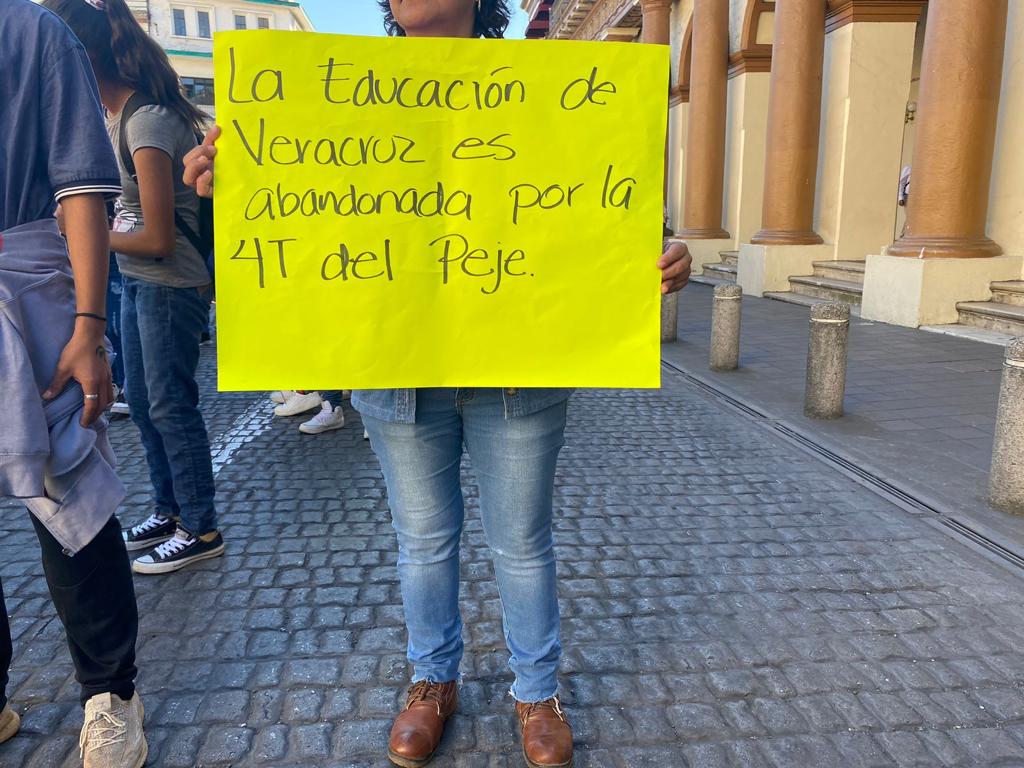 La Educación de
Veracruz es
abandonada por la
4T del Peje.